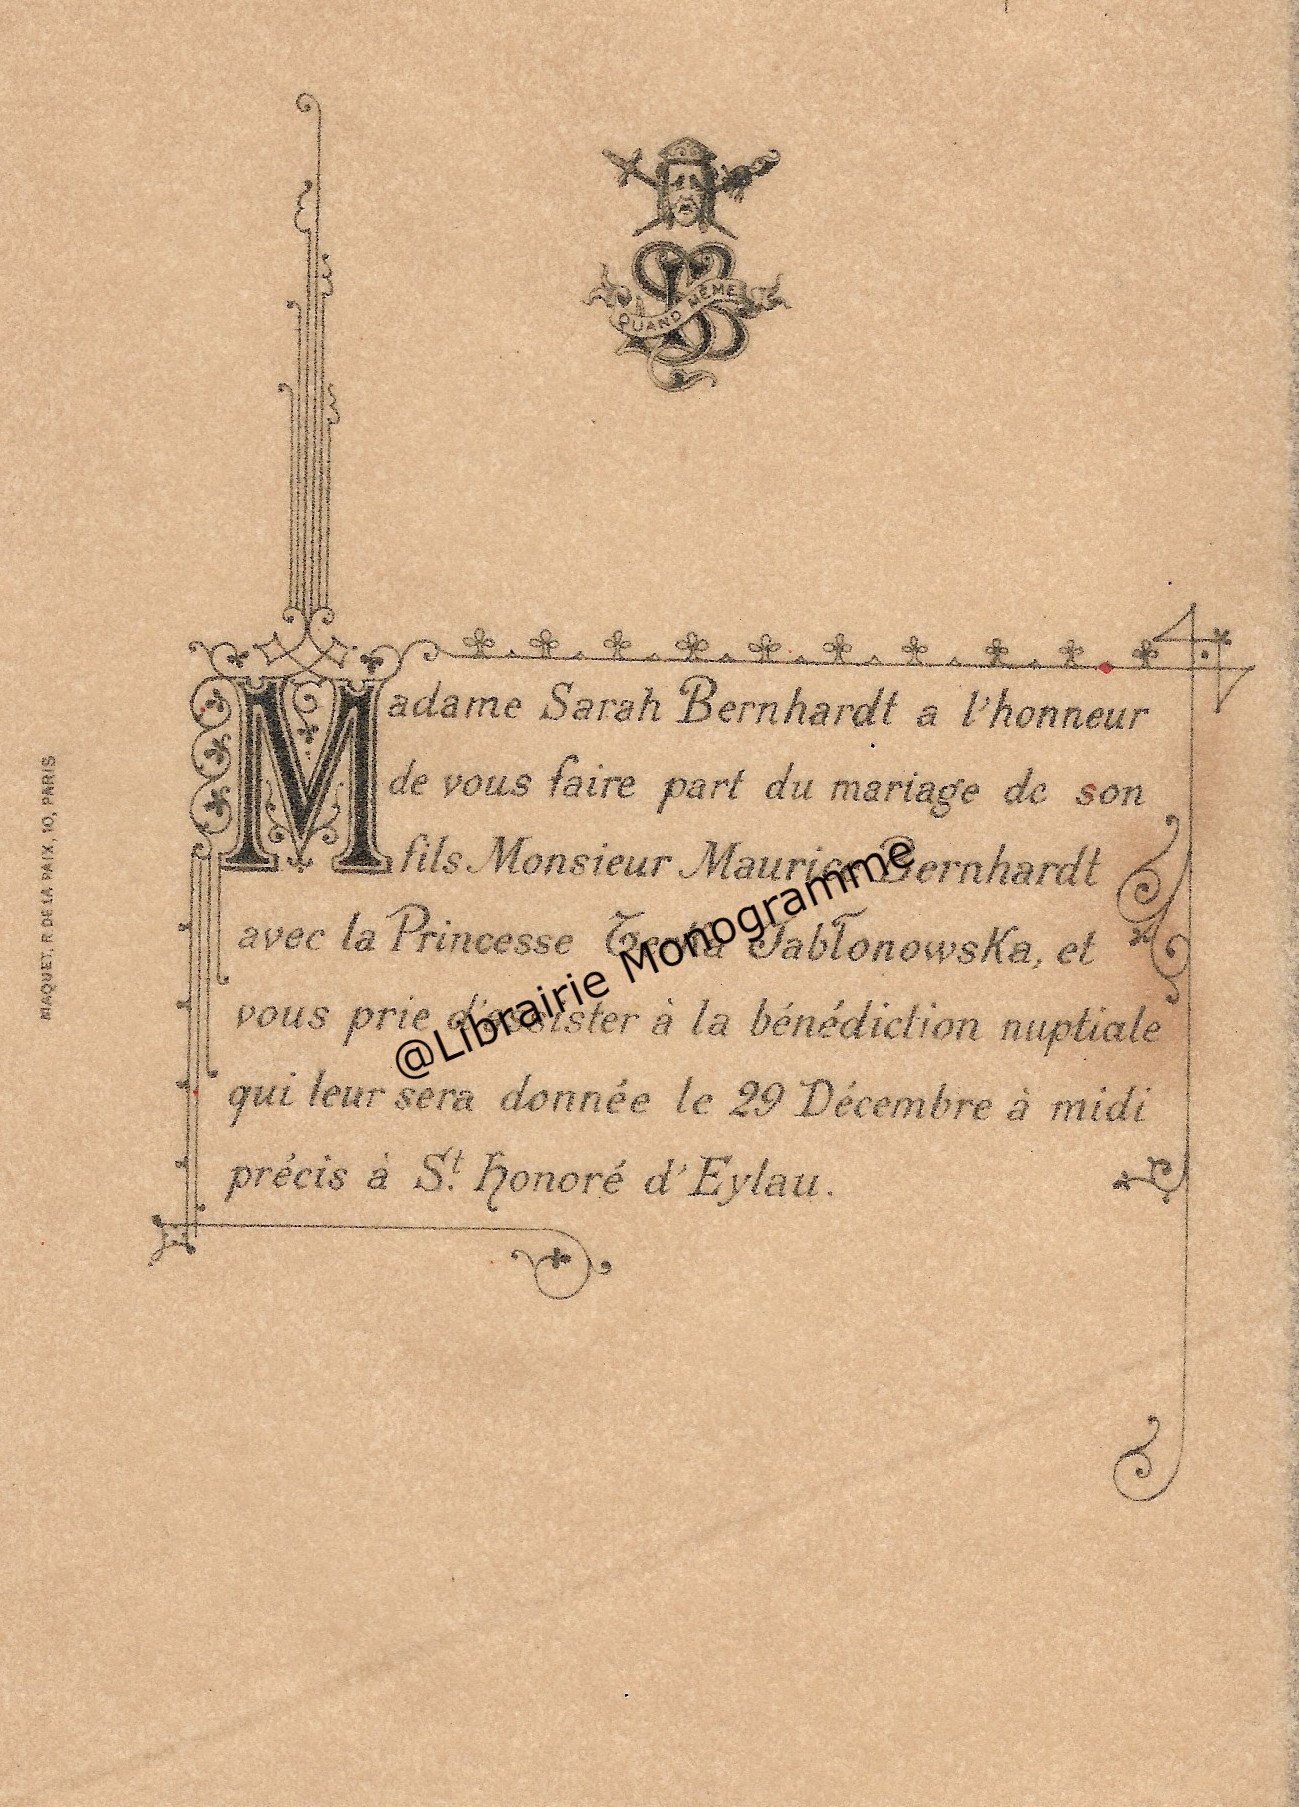 QUAND MÊME
Madame Sarah Bernhardt a l'honneur
de vous faire part du mariage de son
fils Monsieur Maurice Bernhardt
avec la Princesse Jablonowska, et
vous prie d'assister à la bénédiction nuptiale
qui leur sera donnée le 29 Décembre à midi
précis à St. Honoré d'Eylau.
MAQUET, R. DE LA PAIX, 10, PARIS
@Librairie Monogramme